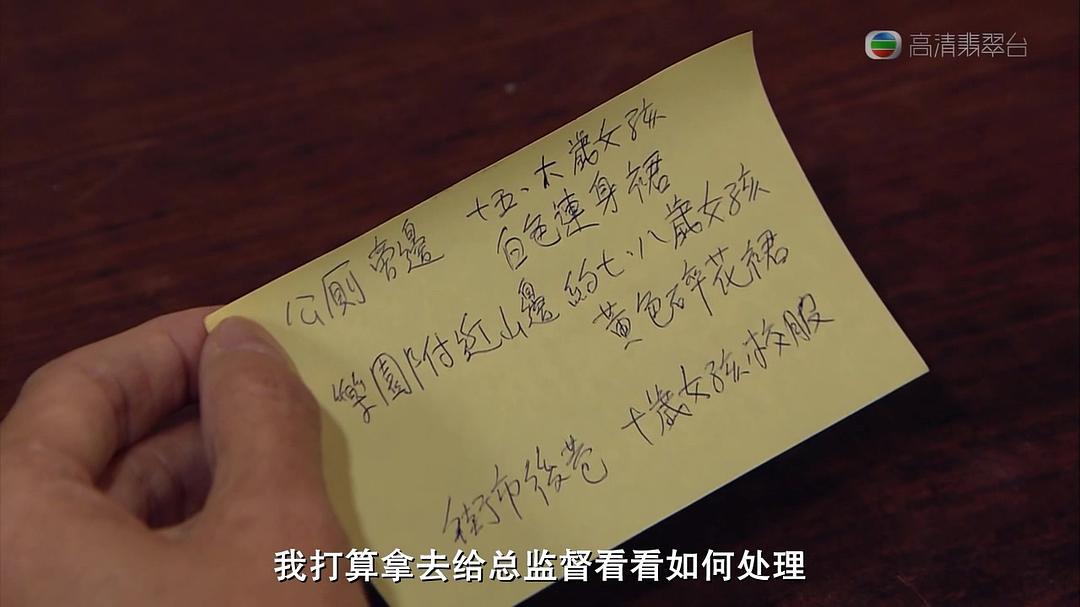 高清翡翠台
公厠旁邊 十五、六歲女孩
白色連身裙
樂園附近山邊 約七、八歲女孩
黃色碎花裙
街市後巷 十歲女孩校服
我打算拿去给总监督看看如何处理